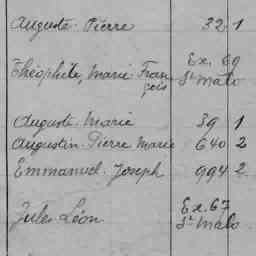 Auguste Pierre 32 1
Ex. 69
Théophile, Marie Fran
çois St Malo
Auguste Marie 39 1
Augustin Pierre Marie 640 2
Emmanuel Joseph 994 2
Ex. 67
Jules Léon St Malo